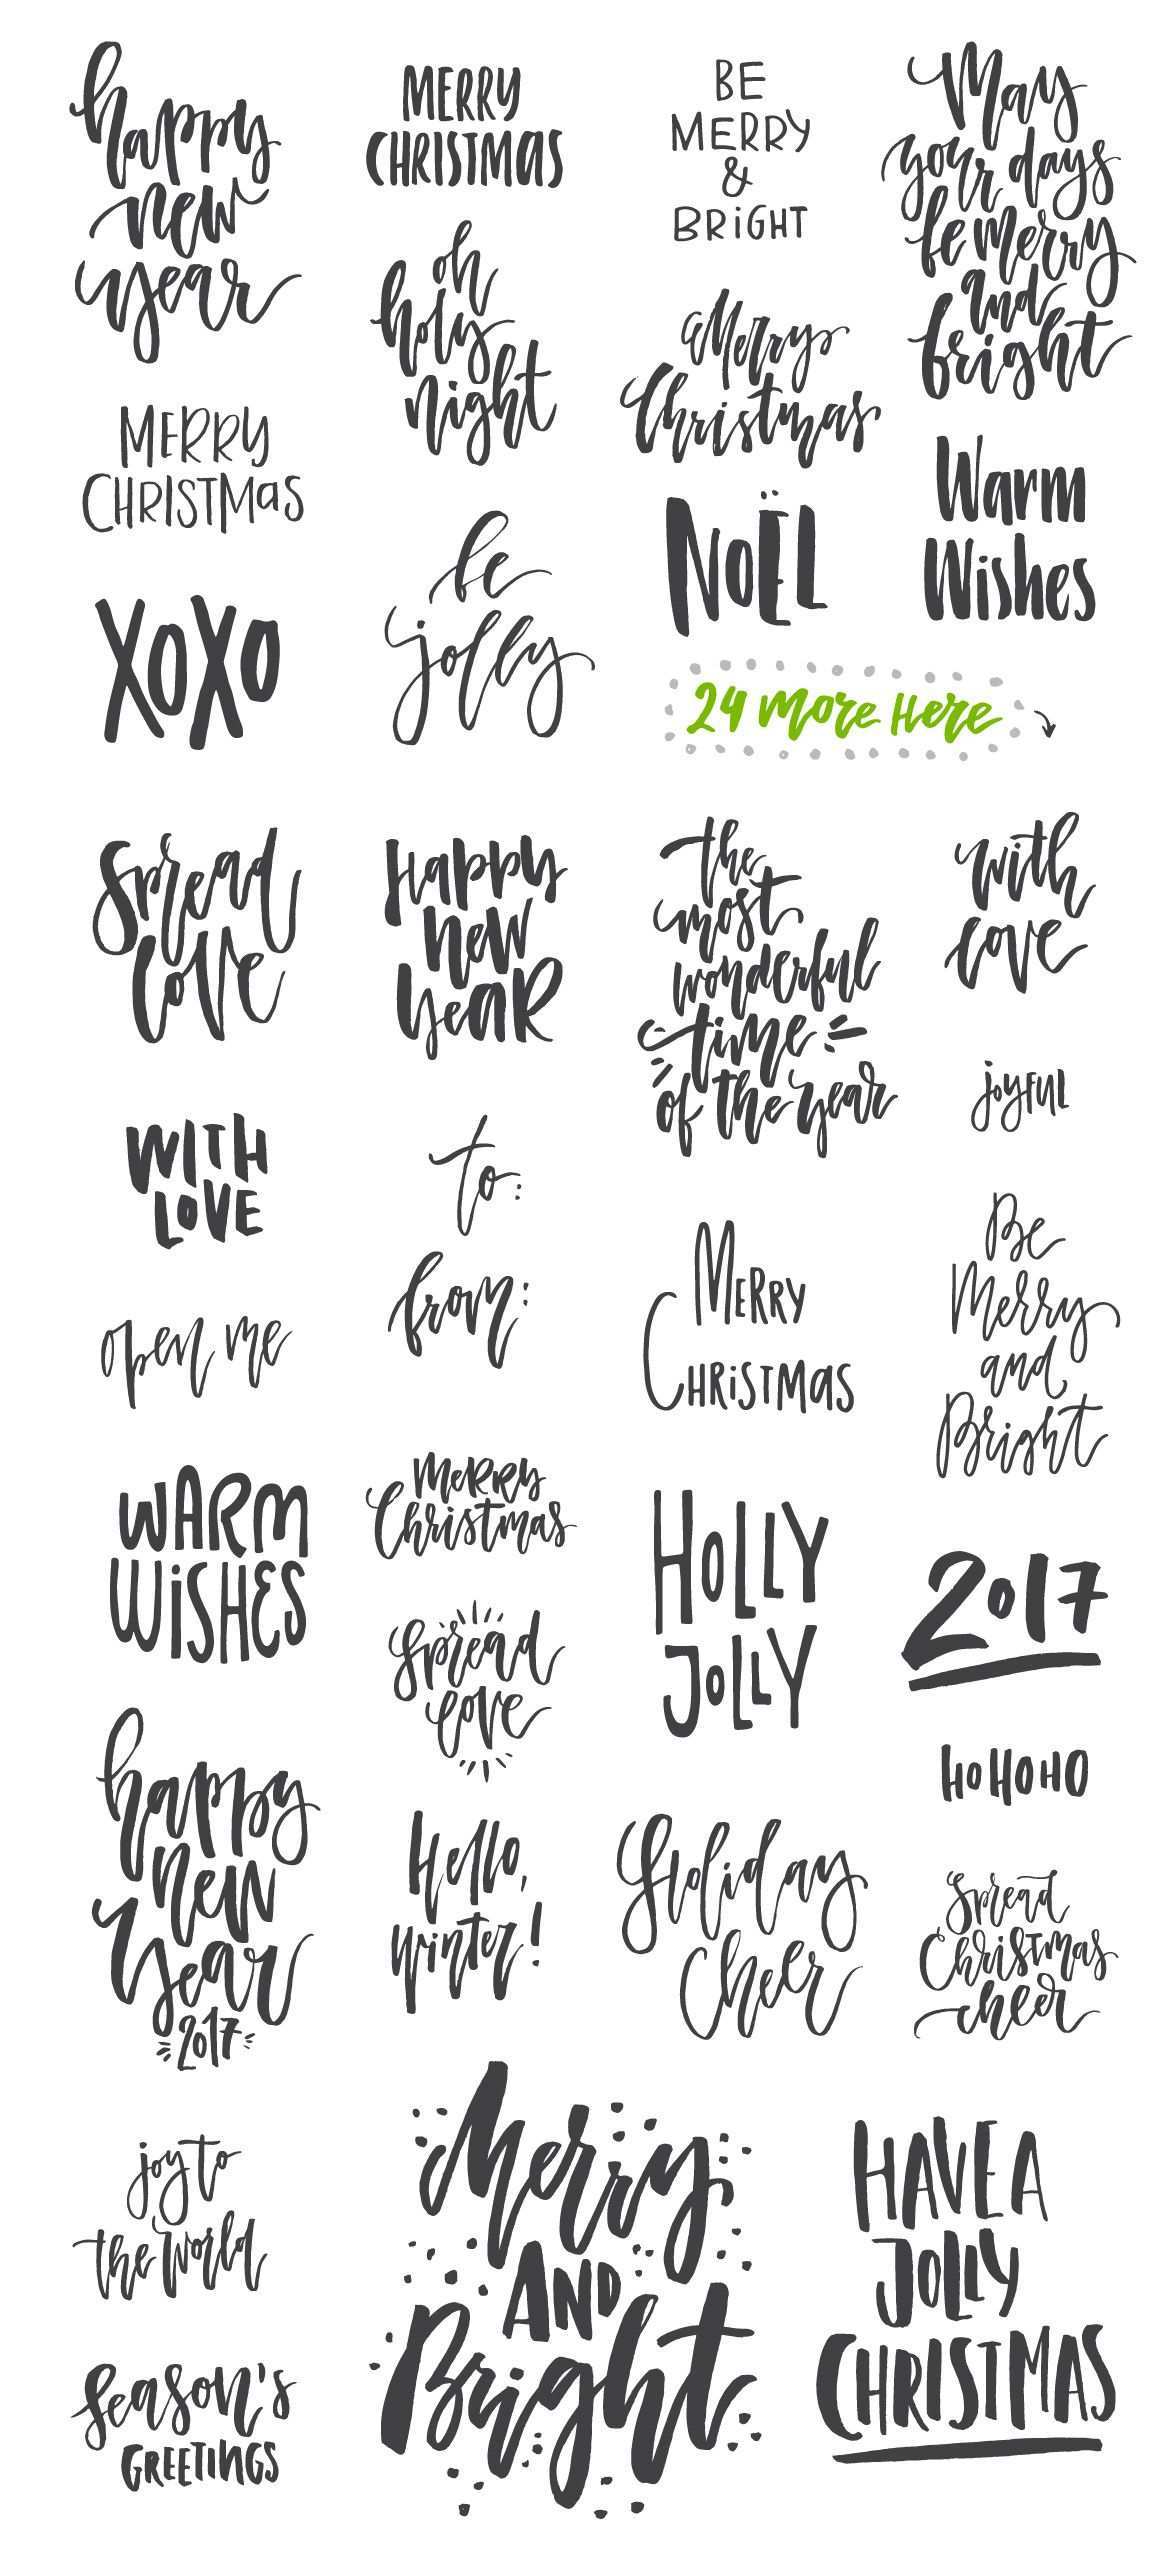 happy
new
year
MERRY
CHRISTMAS
BE
MERRY
&
BRiGHT
May
your days
be merry
and
bright
oh
holy
night
Merry
Christmas
MERRY
CHRISTMas
Warm
Wishes
NOËL
XOXO
be
jolly
24 more Here
Spread
love
Happy
new
yeaR
the
most
wonderful
time
of the year
with
love
joyful
WITH
LOVE
to:
from:
MERRY
CHRiSTMAS
Be
Merry
and
Bright
open me
WARM
WiSHES
MeRRy
Christmas
HOLLY
JOLLY
2017
Spread
love
HOHOHO
happy
new
year
2017
Hello,
winter!
Holiday
Cheer
Spread
Christmas
cheer
joy to
the world
Merry
AND
Bright
HAVE A
JOLLY
CHRISTMAS
Season's
GREETINGS